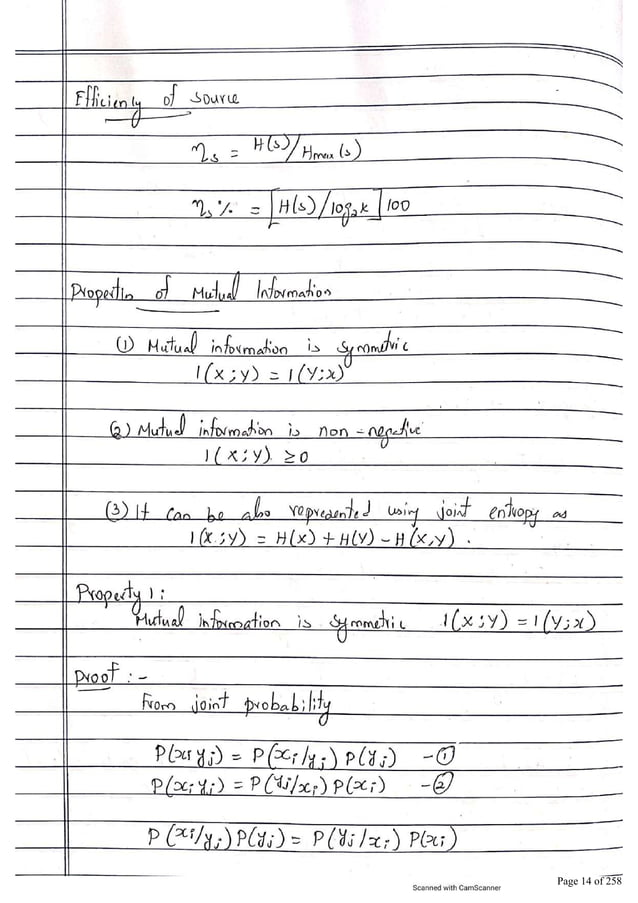 Efficiency of source
ηs = H(s)/Hmax(s)
ηs% = [H(s)/log2k]100
Properties of Mutual Information
(1) Mutual information is symmetric
I(X;Y) = I(Y;X)
(2) Mutual information is non-negative
I(X;Y) ≥0
(3) It can be also represented using joint entropy as
I(X;Y) = H(X)+H(Y)-H(X,Y).
Property 1:
Mutual information is symmetric I(X;Y) = I(Y;X)
Proof :-
From joint probability
P(xi yj) = P(xi/yj) P(yj) -①
P(xi yj) = P(yj/xi) P(xi) -②
P(xi/yj)P(yj) = P(yj/xi) P(xi)
Scanned with CamScanner
Page 14 of 258